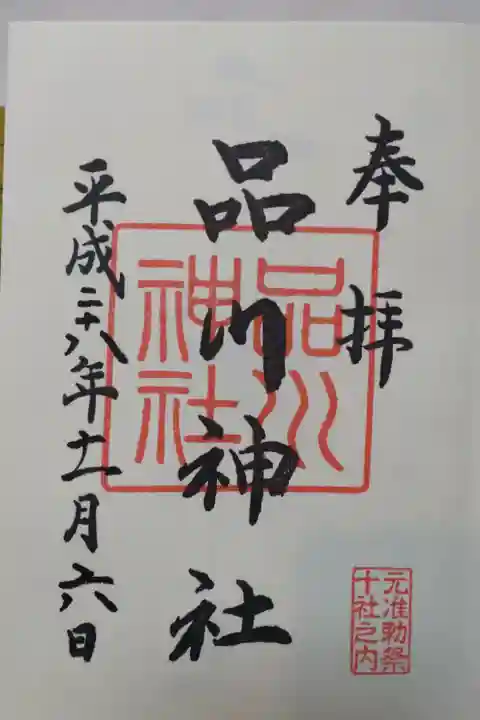 奉拝
品川神社
品川神社
平成二十八年十一月六日
元准勅祭
十社之内